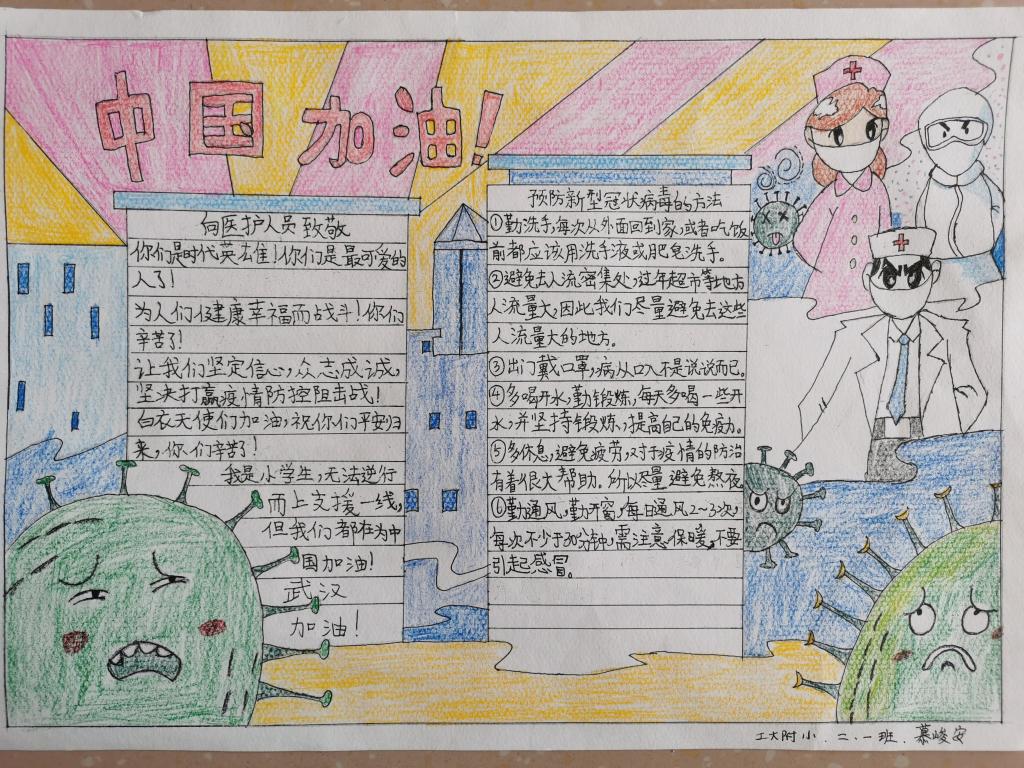 中国加油！
向医护人员致敬
你们是时代英雄！你们是最可爱的
人了！
为人们健康幸福而战斗！你们
辛苦了！
让我们坚定信心，众志成城，
坚决打赢疫情防控阻击战！
白衣天使们加油，祝你们平安归
来，你们辛苦了！
我是小学生，无法逆行
而上支援一线，
但我们都在为中
国加油！
武汉
加油！
预防新型冠状病毒的方法
①勤洗手，每次从外面回到家，或者吃饭
前都应该用洗手液或肥皂洗手。
②避免去人流密集处，过年超市等地方
人流量大，因此我们尽量避免去这些
人流量大的地方。
③出门戴口罩，病从口入不是说说而已。
④多喝开水，勤锻炼，每天多喝一些开
水，并坚持锻炼，提高自己的免疫力。
⑤多休息，避免疲劳，对于疫情的防治
有着很大帮助。所以尽量避免熬夜
⑥勤通风，勤开窗，每日通风2~3次，
每次不少于30分钟，需注意保暖，不要
引起感冒。
工大附小.二.一班.慕峻安